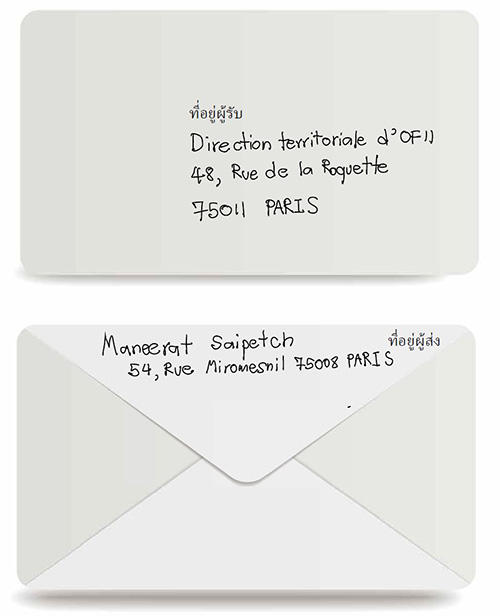 ที่อยู่ผู้รับ
Direction territoriale d'OFII
48, Rue de la Roquette
75011 PARIS
Maneerat Saipetch
ที่อยู่ผู้ส่ง
54, Rue Miromesnil 75008 PARIS